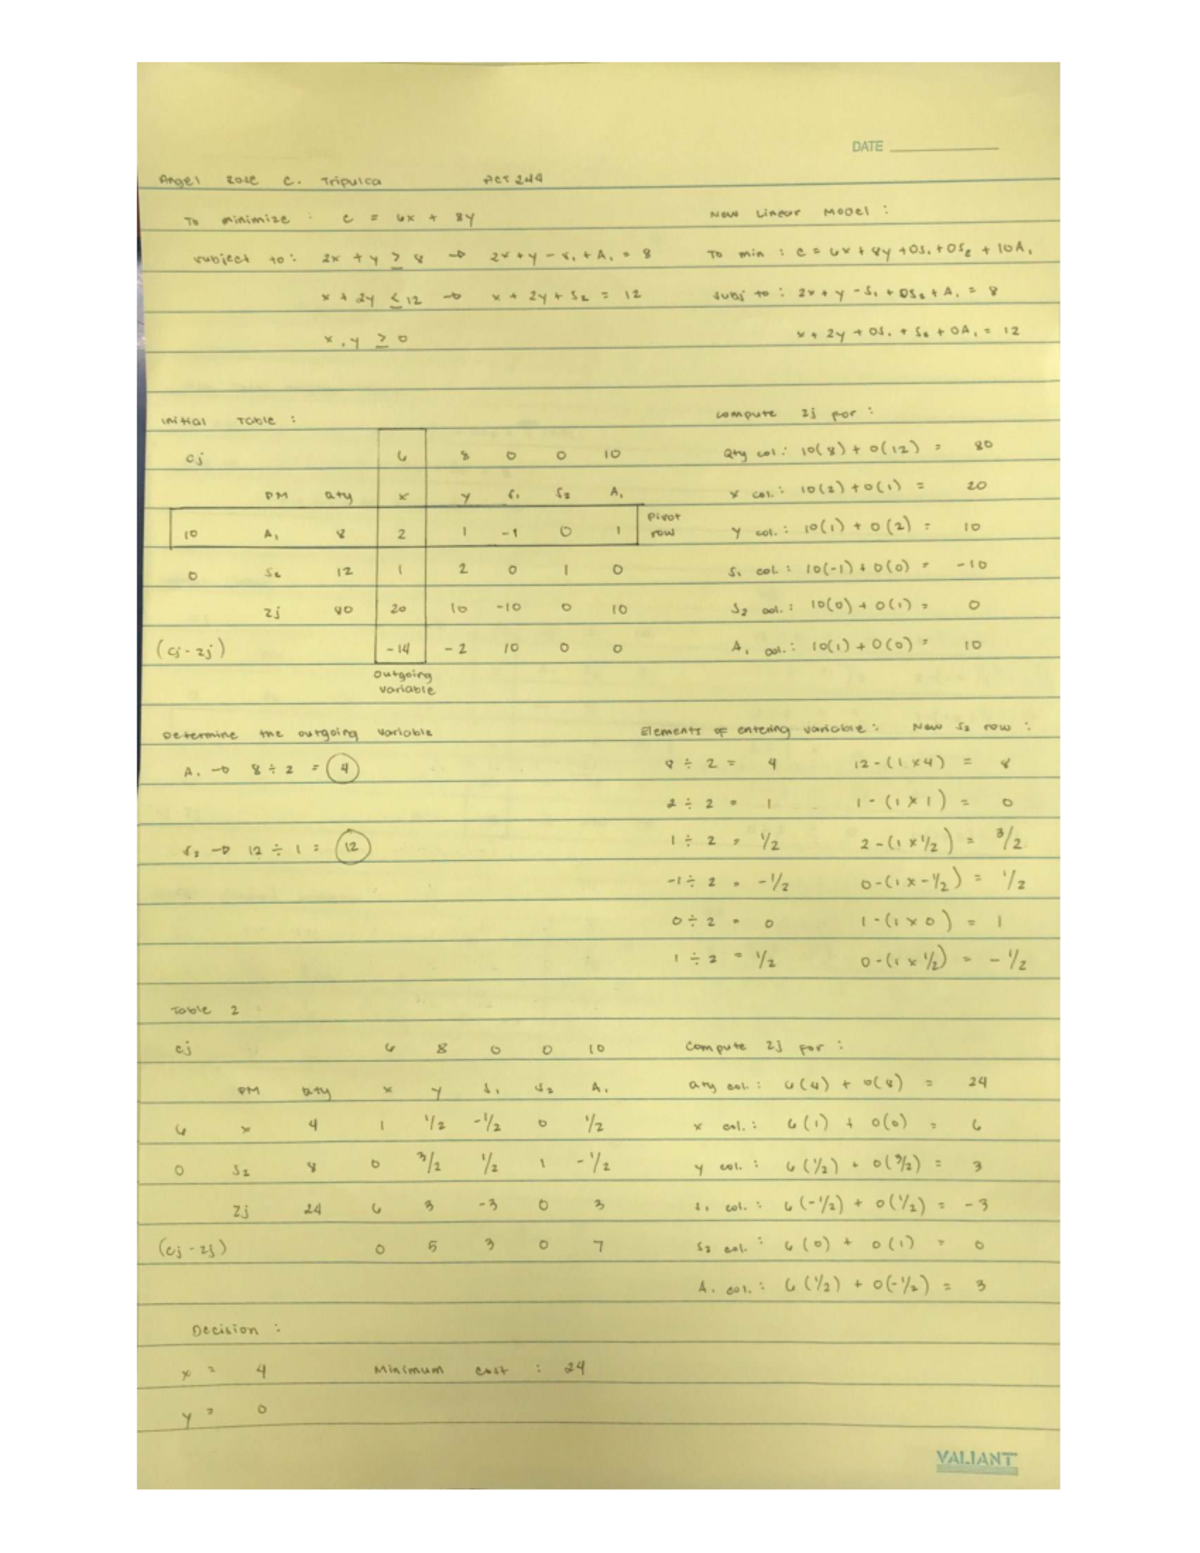 DATE
Angel Rose C. Tripulca ACT 244
To minimize : C = 6x + 8y New Linear Model :
subject to : 2x + y ≥ 8 → 2x + y - S₁ + A₁ = 8 To min : C = 6x + 8y + 0S₁ + 0S₂ + 10A₁
x + 2y ≤ 12 → x + 2y + S₂ = 12 Subj to : 2x + y - S₁ + 0S₂ + A₁ = 8
x, y ≥ 0 x + 2y + 0S₁ + S₂ + 0A₁ = 12
Initial Table : Compute Zj for :
Cj 6 8 0 0 10 Qty col. : 10(8) + 0(12) = 80
PM Qty x y S₁ S₂ A₁ x col. : 10(2) + 0(1) = 20
10 A₁ 8 2 1 -1 0 1 Pivot row y col. : 10(1) + 0(2) = 10
0 S₂ 12 1 2 0 1 0 S₁ col. : 10(-1) + 0(0) = -10
Zj 80 20 10 -10 0 10 S₂ col. : 10(0) + 0(1) = 0
(Cj - Zj) -14 -2 10 0 0 A₁ col. : 10(1) + 0(0) = 10
Outgoing
variable
Determine the outgoing variable Elements of entering variable : New S₂ row :
A₁ → 8 ÷ 2 = 4 8 ÷ 2 = 4 12 - (1 x 4) = 8
2 ÷ 2 = 1 1 - (1 x 1) = 0
S₂ → 12 ÷ 1 = 12 1 ÷ 2 = 1/2 2 - (1 x 1/2) = 3/2
-1 ÷ 2 = -1/2 0 - (1 x -1/2) = 1/2
0 ÷ 2 = 0 1 - (1 x 0) = 1
1 ÷ 2 = 1/2 0 - (1 x 1/2) = -1/2
Table 2
Cj 6 8 0 0 10 Compute Zj for :
PM Qty x y S₁ S₂ A₁ Qty col. : 6(4) + 0(8) = 24
6 x 4 1 1/2 -1/2 0 1/2 x col. : 6(1) + 0(0) = 6
0 S₂ 8 0 3/2 1/2 1 -1/2 y col. : 6(1/2) + 0(3/2) = 3
Zj 24 6 3 -3 0 3 S₁ col. : 6(-1/2) + 0(1/2) = -3
(Cj - Zj) 0 5 3 0 7 S₂ col. : 6(0) + 0(1) = 0
A₁ col. : 6(1/2) + 0(-1/2) = 3
Decision :
x = 4 Minimum cost : 24
y = 0
VALIANT